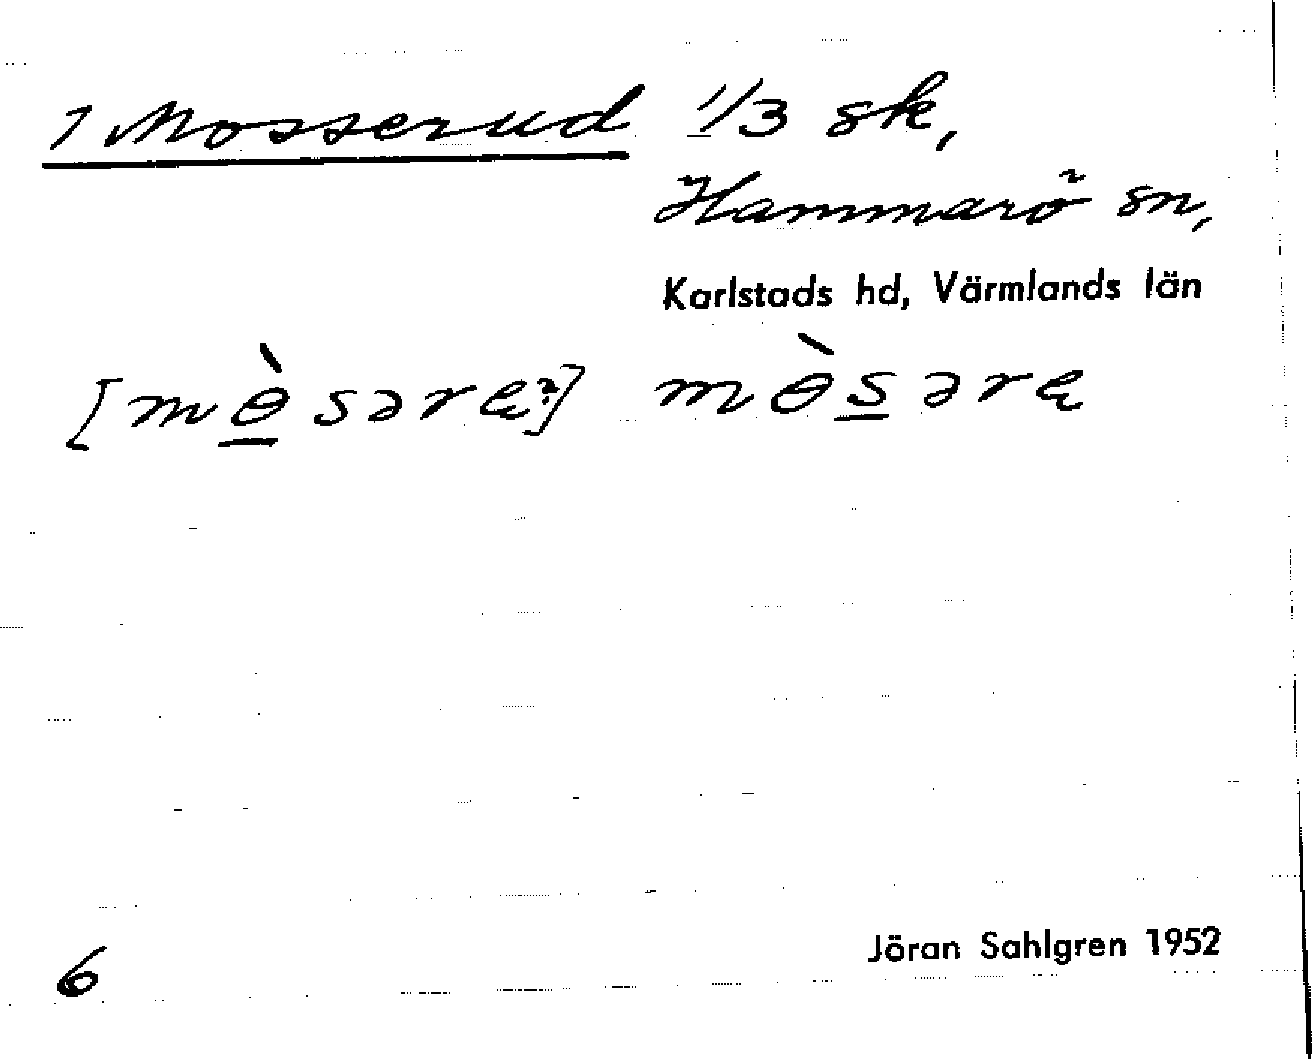 1 Mosserud 1/3 sk,
Hammarö sn,
Karlstads hd, Värmlands län
[mɵ̀sərɐ?] mɵ̀sərɐ
6
Jöran Sahlgren 1952